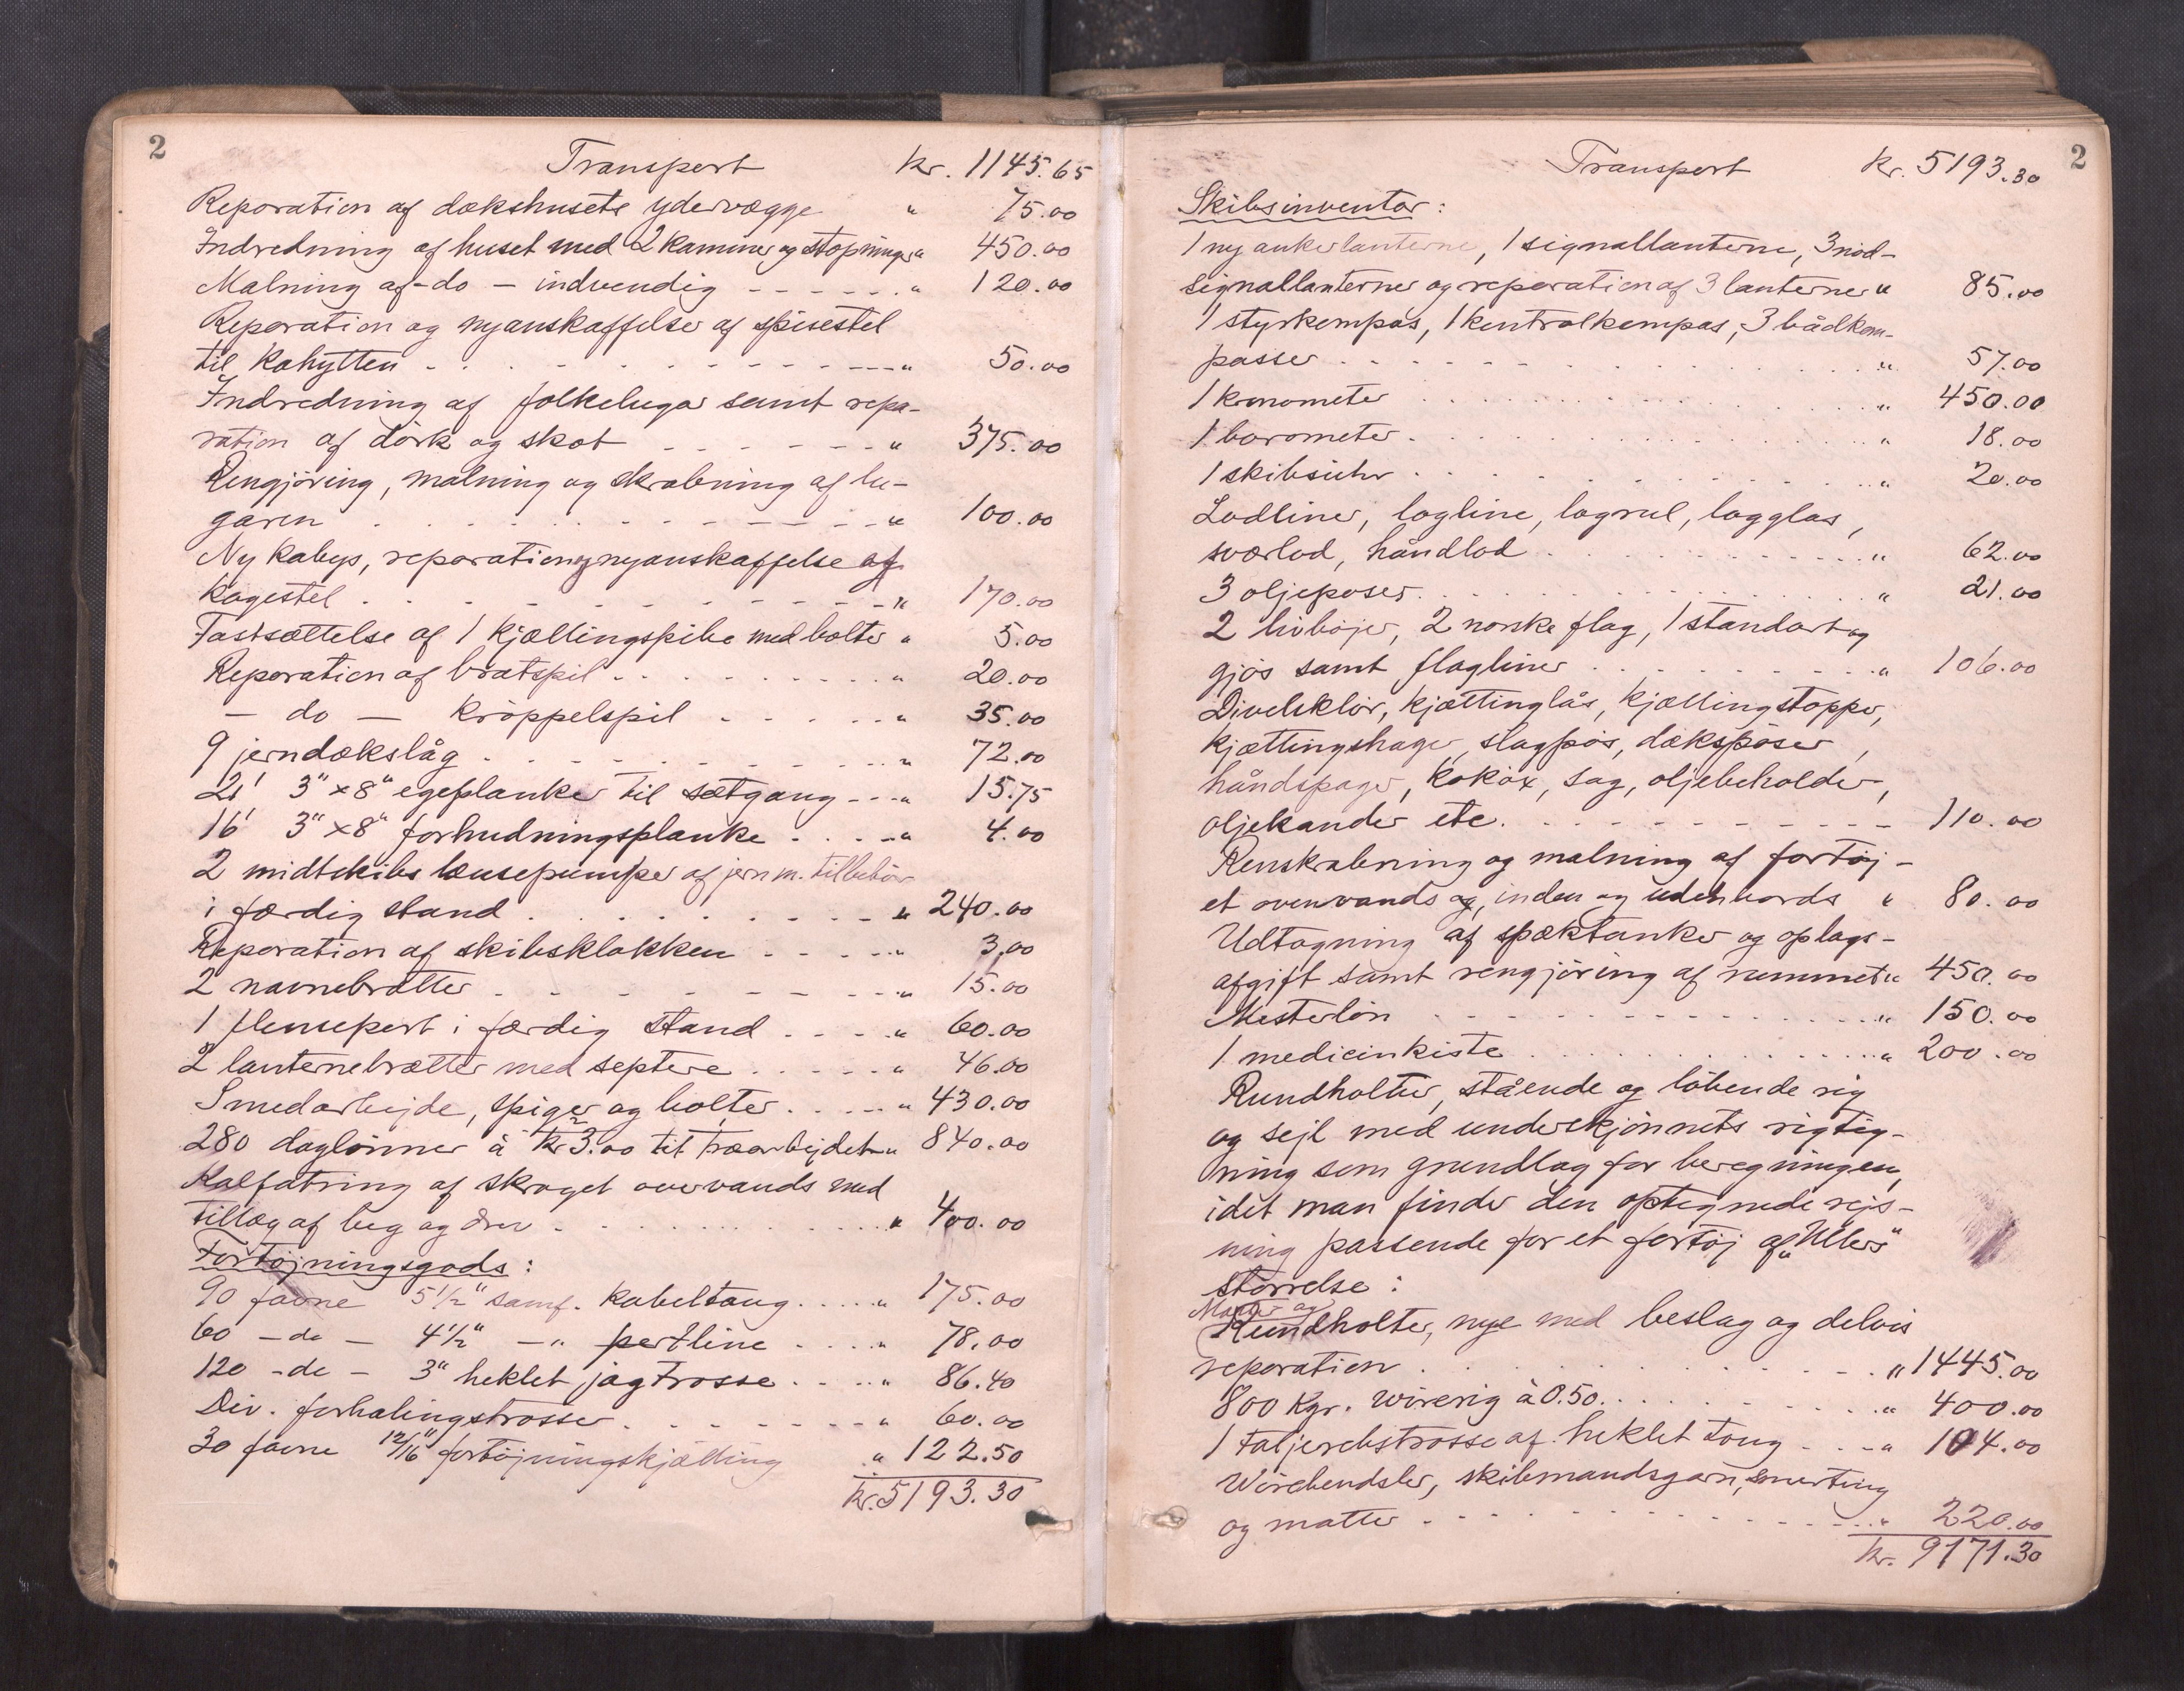 2
Transport kr. 1145.65
Reparation af dækshusets ydervægge " 75.00
Indredning af huset med 2 kaminer og stopninger " 450.00
Malning af - do - indvendig - - - - - - " 120.00
Reparation og nyanskaffelse af spisestel
til kahytten - - - - - - - - - - " 50.00
Indredning af folkelugar samt repa-
ration af dörk og skot - - - - - - " 375.00
Rengjöring, malning og skrabning af lu-
garen - - - - - - - - - - " 100.00
Ny kabys, reparation og nyanskaffelse af
kogestel - - - - - - - - - - " 170.00
Fastsættelse af 1 kjættingspibe med bolter " 5.00
Reparation af bratspil - - - - - - - " 20.00
- do - kröppelspil - - - - - " 35.00
9 jerndækslåg - - - - - - - - - " 72.00
21' 3" x 8" egeplanker til sætgang - - - " 15.75
16' 3" x 8" forhudningsplanke - - - - " 4.00
2 midtskibs lænsepumper af jern m. tilbehör
i færdig stand - - - - - - - - " 240.00
Reparation af skibsklokken - - - - - " 3.00
2 navnebrætter - - - - - - - - " 15.00
1 flenseport i færdig stand - - - - " 60.00
2 lanternebrætter med septere - - - - - " 46.00
Smedarbejde, spiger og bolter - - - - " 430.00
280 daglönner à kr 3.00 til træarbejdet " 840.00
Kalfatring af skroget overvands med
tillæg af beg og drev - - - - - - - " 400.00
Fortöjningsgods:
90 favne 5 1/2" samf. kabeltaug - - - - " 175.00
60 - do - 4 1/2" - " pertline - - - - " 78.00
120 - do - 3" heklet jagtrosse - - - - " 86.40
Div. forhalingstrosser - - - - - - - " 60.00
30 favne 12/16" fortöjningskjætting " 122.50
kr. 5193.30
2
Transport kr. 5193.30
Skibsinventar:
1 ny ankerlanterne, 1 signallanterne, 3 nöd-
signallanterner og reparation af 3 lanterner " 85.00
1 styrkompas, 1 kontrolkompas, 3 bådkom-
passer - - - - - - - - - - " 57.00
1 kronometer - - - - - - - - - " 450.00
1 barometer - - - - - - - - - - " 18.00
1 skibsuhr - - - - - - - - - - " 20.00
Lodliner, logline, logrul, logglas,
sværlod, håndlod - - - - - - - - " 62.00
3 oljeposer - - - - - - - - - - " 21.00
2 livböjer, 2 norske flag, 1 standart og
gjös samt flagliner - - - - - - - " 106.00
Divelsklör, kjættinglås, kjættingstopper,
kjættingshager, slagpös, dækspöser,
håndspager, koköx, sag, oljebeholder,
oljekander etc. - - - - - - - - - 110.00
Renskrabning og malning af fartöj-
et ovenvands og, inden og udenbords " 80.00
Udtagning af spæktanker og oplags-
afgift samt rengjöring af rummet " 450.00
Mesterlön - - - - - - - - - - " 150.00
1 medicinkiste - - - - - - - - - " 200.00
Rundholter, stående og löbende rig
og sejl med underskjönnets rigtig-
ning som grundlag for beregningen,
idet man finder den optegnede rejs-
ning passende for et fartöj af "Ullers"
störrelse:
Master og
Rundholter, nye med beslag og delvis
reparation - - - - - - - - - - " 1445.00
800 Kgr. wirerig à 0.50 - - - - - - - " 400.00
1 taljerebstrosse af heklet toug - - - " 104.00
Wirebendsler, skibmandsgarn, smerting
og matter - - - - - - - - - - " 220.00
kr. 9171.30